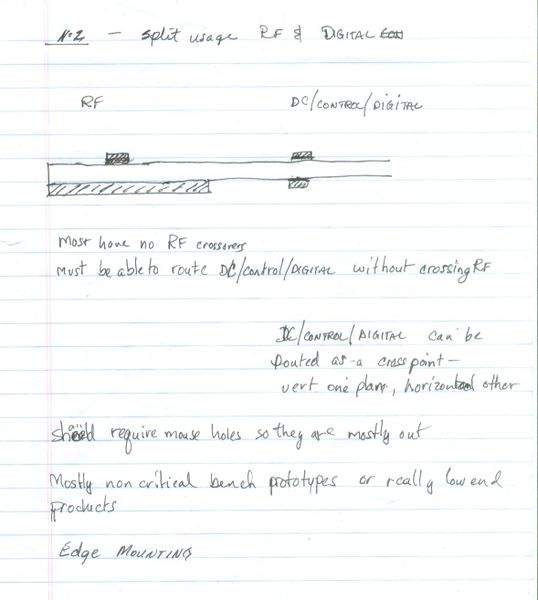 N=2 – split usage RF & DIGITAL
RF
DC/CONTROL/DIGITAL
Most have no RF crossovers
Must be able to route DC/control/DIGITAL without crossing RF
DC/CONTROL/DIGITAL can be
routed as a crosspoint –
vert one plane, horizontal other
require mouse holes so they are mostly out
Mostly non critical bench prototypes or really low end
products
Edge MOUNTING